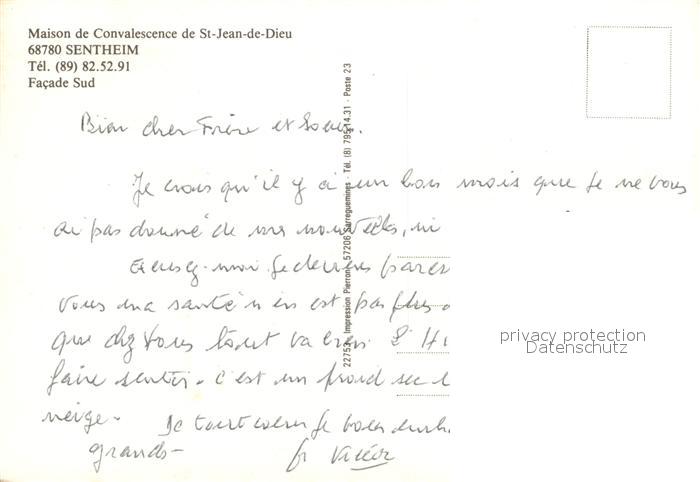 Maison de Convalescence de St-Jean-de-Dieu
68780 SENTHEIM
Tél. (89) 82.52.91
Façade Sud
Bien cher Frère et Soeur.
Je crois qu'il y a un bon mois que je ne vous
ai pas donné de mes nouvelles, ni
Excusez-moi
vous ma santé n'en est pas plus
que chez vous tout va bien. L'Hi
faire sentir. c'est un froid sec
neige. De tout coeur je vous
grands-
fr
22753 Impression Pierron 57206 Sarreguemines - Tél. (8) 795.14.31 - Poste 23
privacy protection
Datenschutz